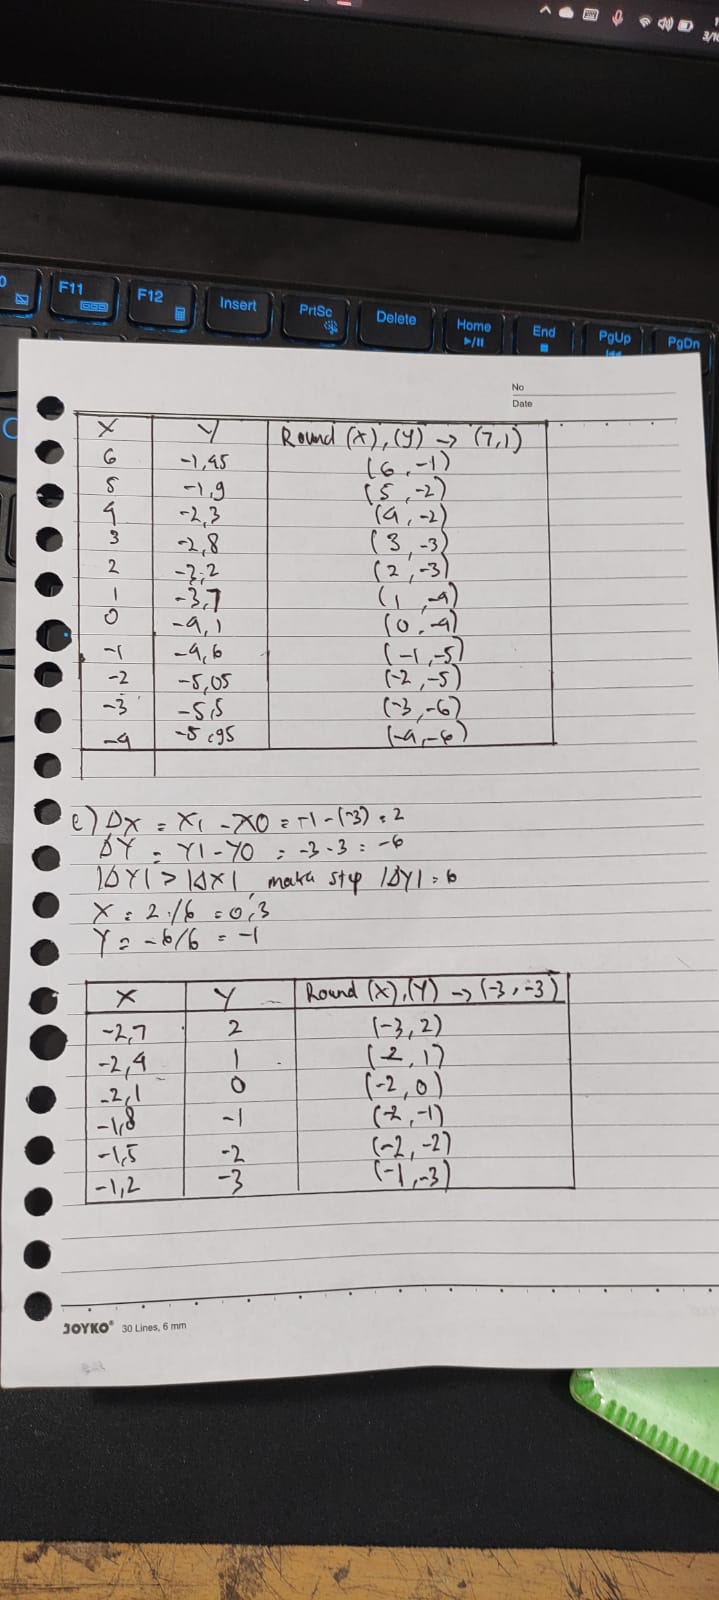 F11
F12
Insert
PrtSc
Delete
Home
End
PgUp
PgDn
No
Date
X Y Round (X), (Y) -> (7,1)
6 -1,45 (6, -1)
5 -1,9 (5, -2)
4 -2,3 (4, -2)
3 -2,8 (3, -3)
2 -3,2 (2, -3)
1 -3,7 (1, -4)
0 -4,1 (0, -4)
-1 -4,6 (-1, -5)
-2 -5,05 (-2, -5)
-3 -5,5 (-3, -6)
-4 -5,95 (-4, -6)
e) ΔX = X1 - X0 = -1 - (-3) = 2
ΔY = Y1 - Y0 = -3 - 3 = -6
|ΔY| > |ΔX|, maka step |ΔY| = 6
X = 2/6 = 0,3
Y = -6/6 = -1
X Y Round (X), (Y) -> (-3, -3)
-2,7 2 (-3, 2)
-2,4 1 (-2, 1)
-2,1 0 (-2, 0)
-1,8 -1 (-2, -1)
-1,5 -2 (-2, -2)
-1,2 -3 (-1, -3)
JOYKO® 30 Lines, 6 mm